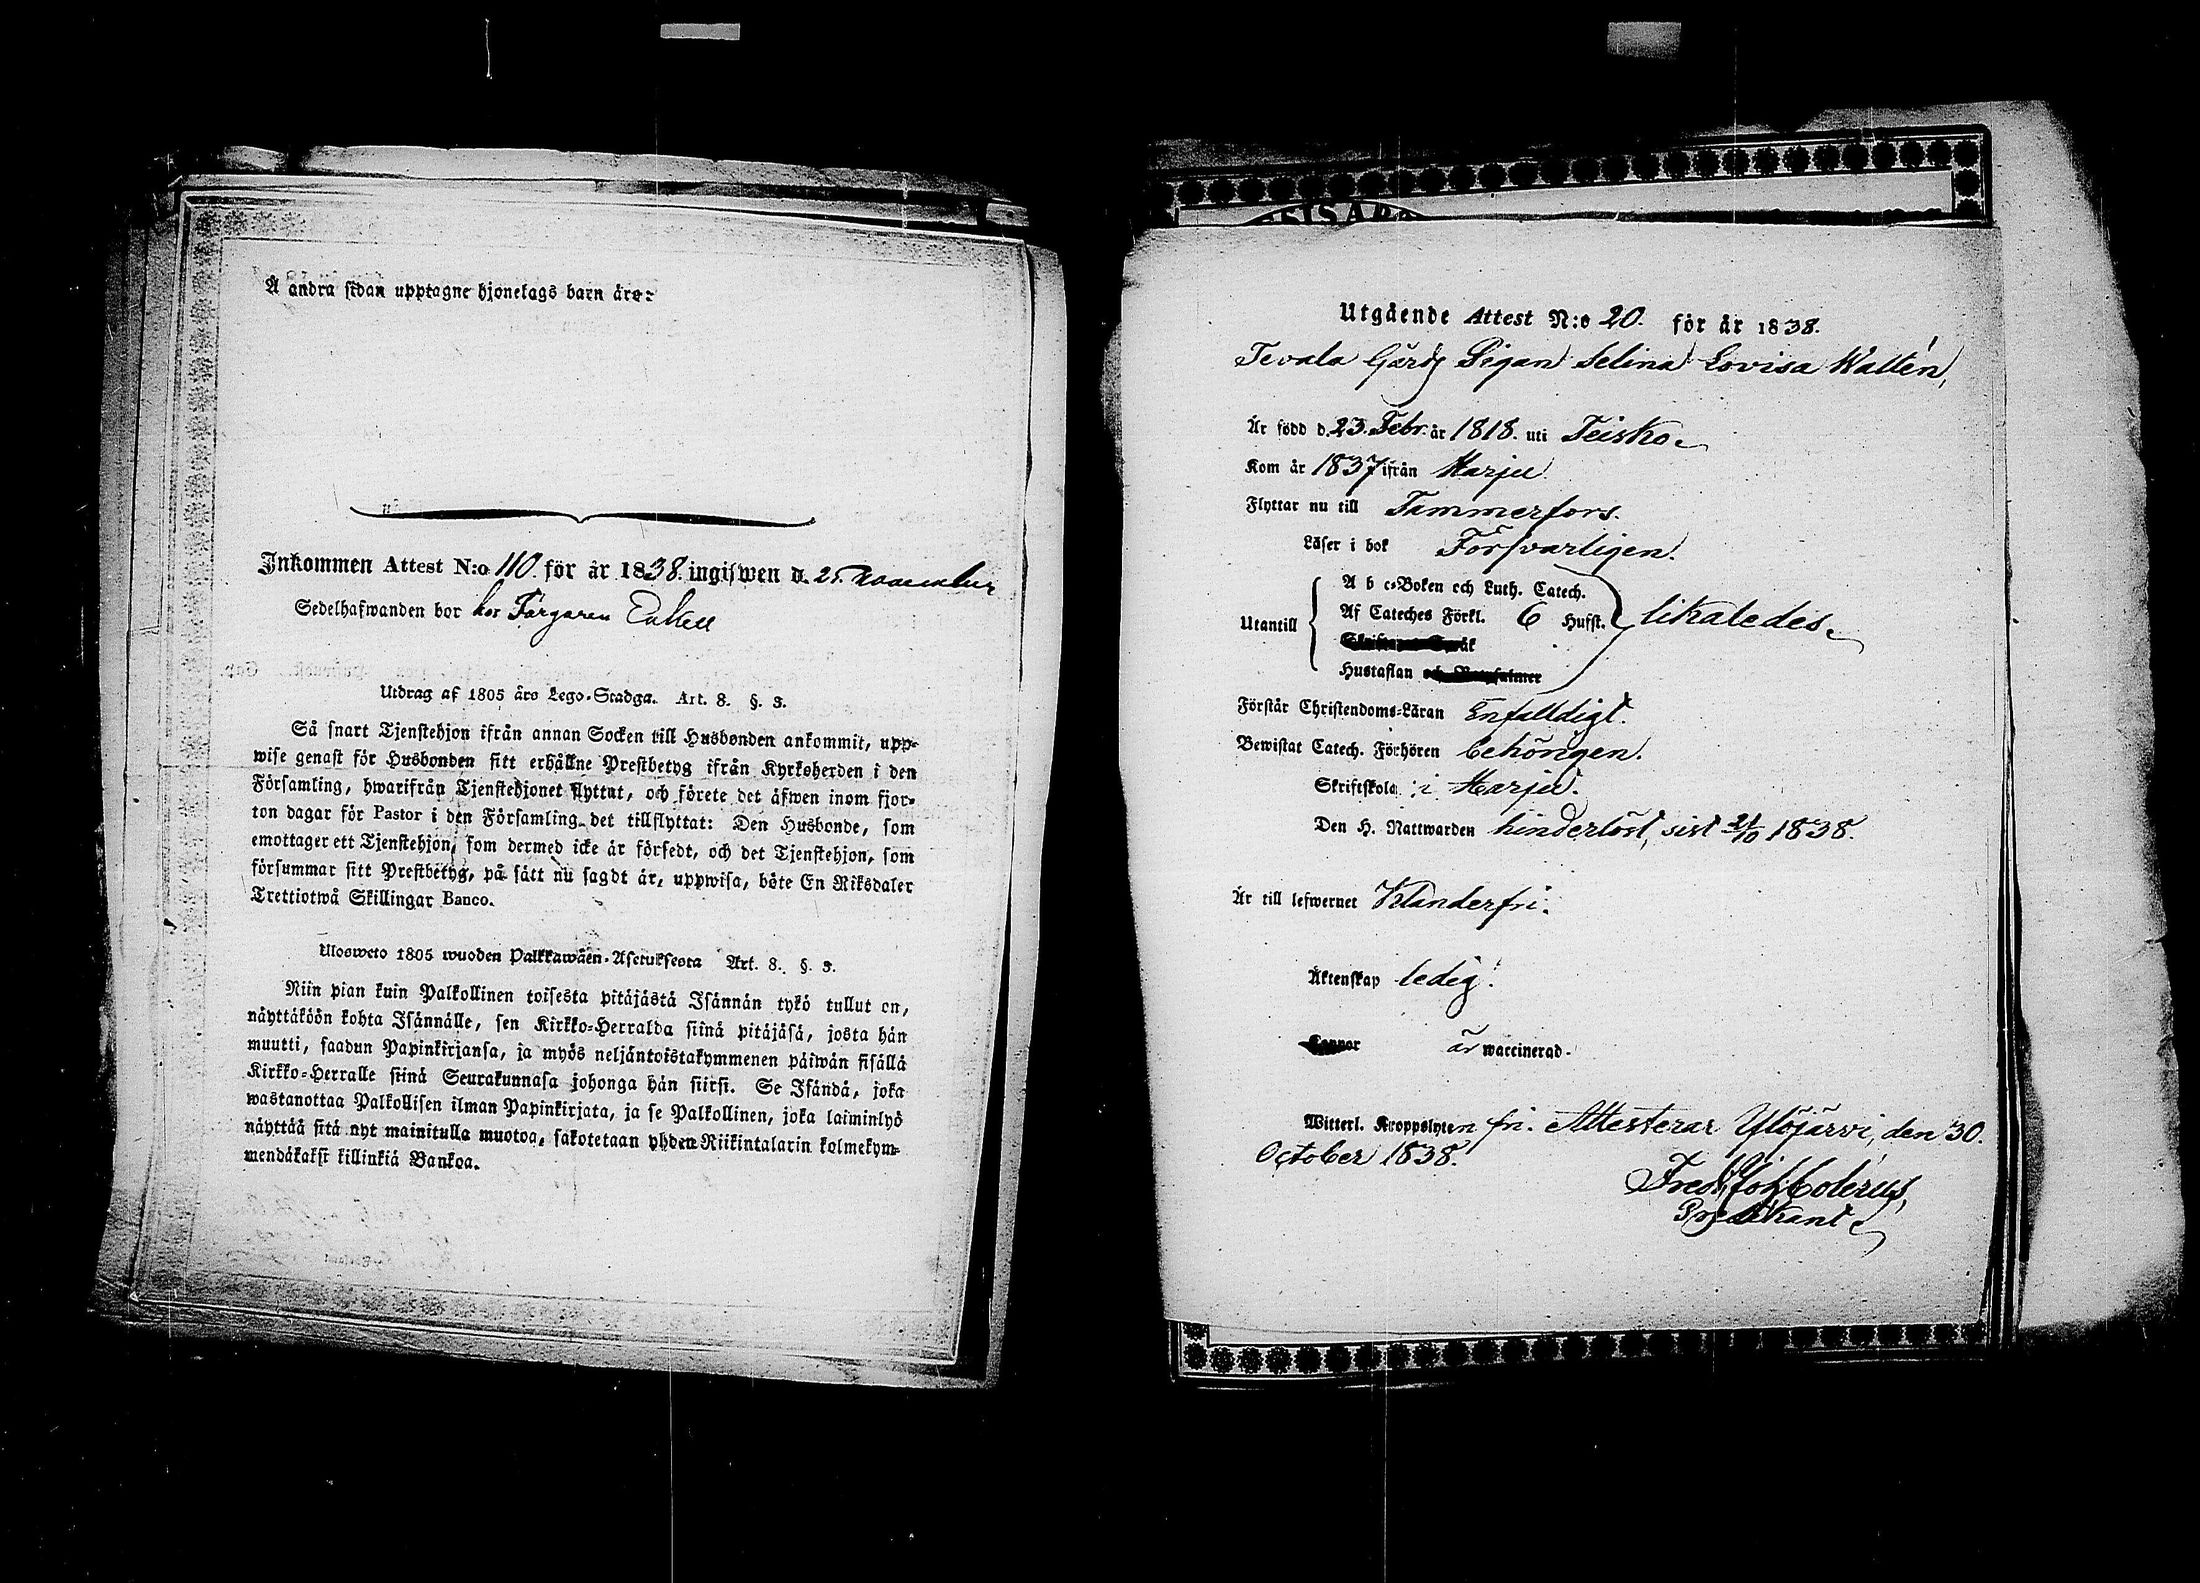 Å andra sidan upptagne hjonelags barn äro:
Inkommen Attest N:o 110. för år 1838. ingifwen d. 25 November
Sedelhafwanden bor hos Färgaren Enkell
Utdrag af 1805 års Lego-Stadga. Art. 8. §. 3.
Så snart Tjenstehjon ifrån annan Socken till Husbonden ankommit, upp-
wise genast för Husbonden sitt erhållne Prestbetyg ifrån Kyrkoherden i den
Församling, hwarifrån Tjenstehjonet flyttat, och förete det äfwen inom fjor-
ton dagar för Pastor i den Församling det tillflyttat: Den Husbonde, som
emottager ett Tjenstehjon, som dermed icke är försedt, och det Tjenstehjon, som
försummar sitt Prestbetyg, på sätt nu sagdt är, uppwisa, böte En Riksdaler
Trettiotwå Skillingar Banco.
Ulosweto 1805 wuoden Palkkawäen-Asetuksesta Art. 8. §. 3.
Niin pian kuin Palkollinen toisesta pitäjästä Isännän tykö tullut on,
näyttäköön kohta Isännälle, sen Kirkko-Herralda siinä pitäjäsä, josta hän
muutti, saadun Papinkirjansa, ja myös neljäntoistakymmenen päiwän sisällä
Kirkko-Herralle siinä Seurakunnasa johonga hän siirsi. Se Isändä, joka
wastanottaa Palkollisen ilman Papinkirjata, ja se Palkollinen, joka laiminlyö
näyttää sitä nyt mainitulla muotoa, sakotetaan yhden Riikintalarin kolmekym-
mendäkaksi killinkiä Bankoa.
SISAR
Utgående Attest N:o 20. för år 1838.
Tevala Gårds Pigan Selina Lovisa Wallén,
Är född d. 23. Febr. år 1818. uti Teisko
Kom år 1837 ifrån Harju
Flyttar nu till Tammerfors.
Läser i bok Försvarligen.
A b c-Boken och Luth. Catech.
Utantill Af Cateches Förkl. 6 Hufst. likaledes.
Hustaflan
Förstår Christendoms-Läran Enfalldigt.
Bewistat Catech. Förhören behörigen.
Skriftskola i Harju.
Den H. Nattwarden hinderlöst, sist 21/10 1838.
Är till lefwernet Klanderfri.
Äktenskap ledig.
är waccinerad.
Witterl. Kroppslyten fri. Attesterar Ylöjärvi, den 30.
October 1838.
Fredr. Joh. Colerus,
Predikant